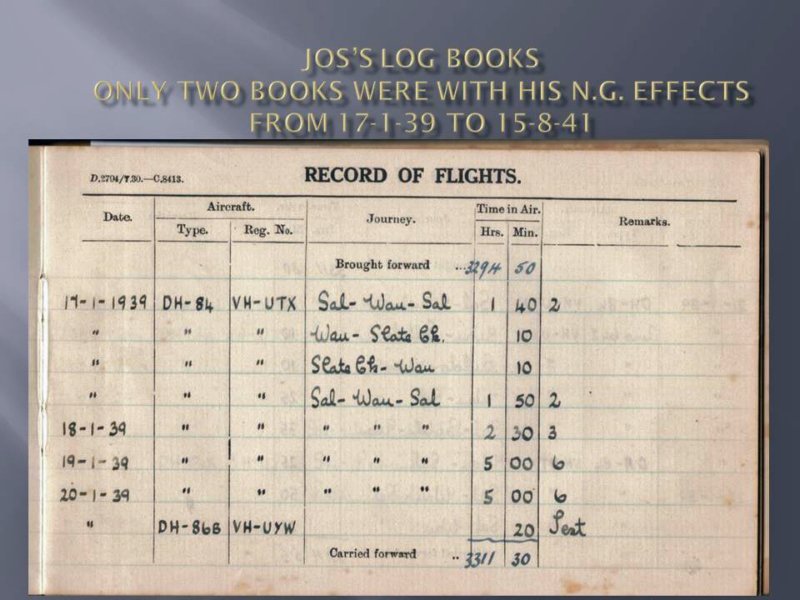 JOS'S LOG BOOKS
ONLY TWO BOOKS WERE WITH HIS N.G. EFFECTS
FROM 17-1-39 TO 15-8-41
D.2794/7.30.—C.8413. RECORD OF FLIGHTS.
Date. Aircraft. Journey. Time in Air. Remarks.
Type. Reg. No. Hrs. Min.
Brought forward ..3294 50
17-1-1939 DH-84 VH-UTX Sal- Wau- Sal 1 40 2
" " " Wau- Slate Ck. 10
" " " Slate Ck- Wau 10
" " " Sal- Wau- Sal 1 50 2
18-1-39 " " " " " 2 30 3
19-1-39 " " " " " 5 00 6
20-1-39 " " " " " 5 00 6
" DH-86B VH-UYW 20 Test
Carried forward .. 3311 30